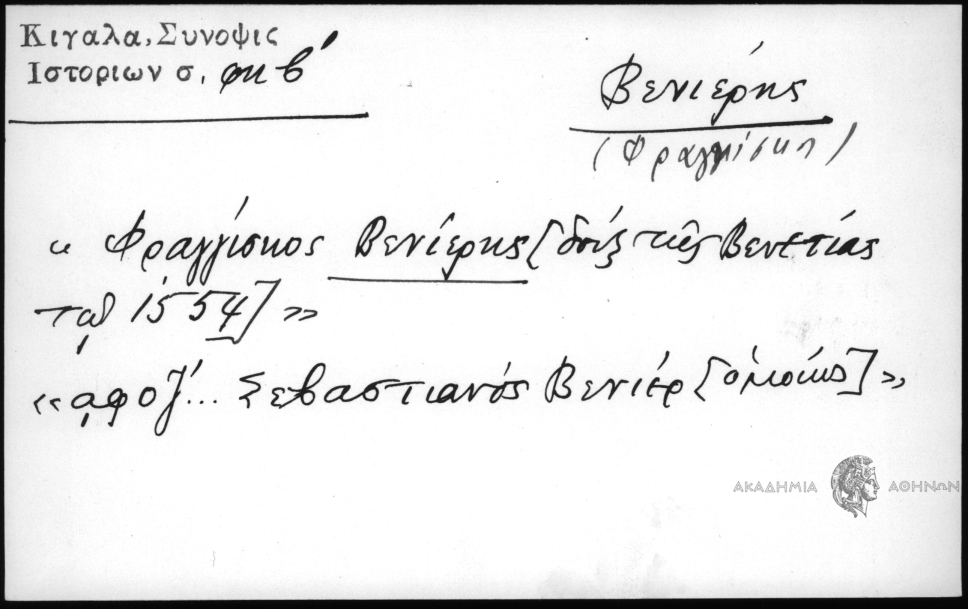 Κιγαλα, Συνοψις
Ιστοριων σ. φκβ΄
Βενιέρης
(Φραγγίσκη)
« Φραγγίσκος Βενίερης [δὸιξ τῆς Βενετίας
τῷ 1554] »
«͵αφοζ΄... Σεβαστιανός Βενιέρ [ὁμοίως] »
ΑΚΑΔΗΜΙΑ ΑΘΗΝΩΝ